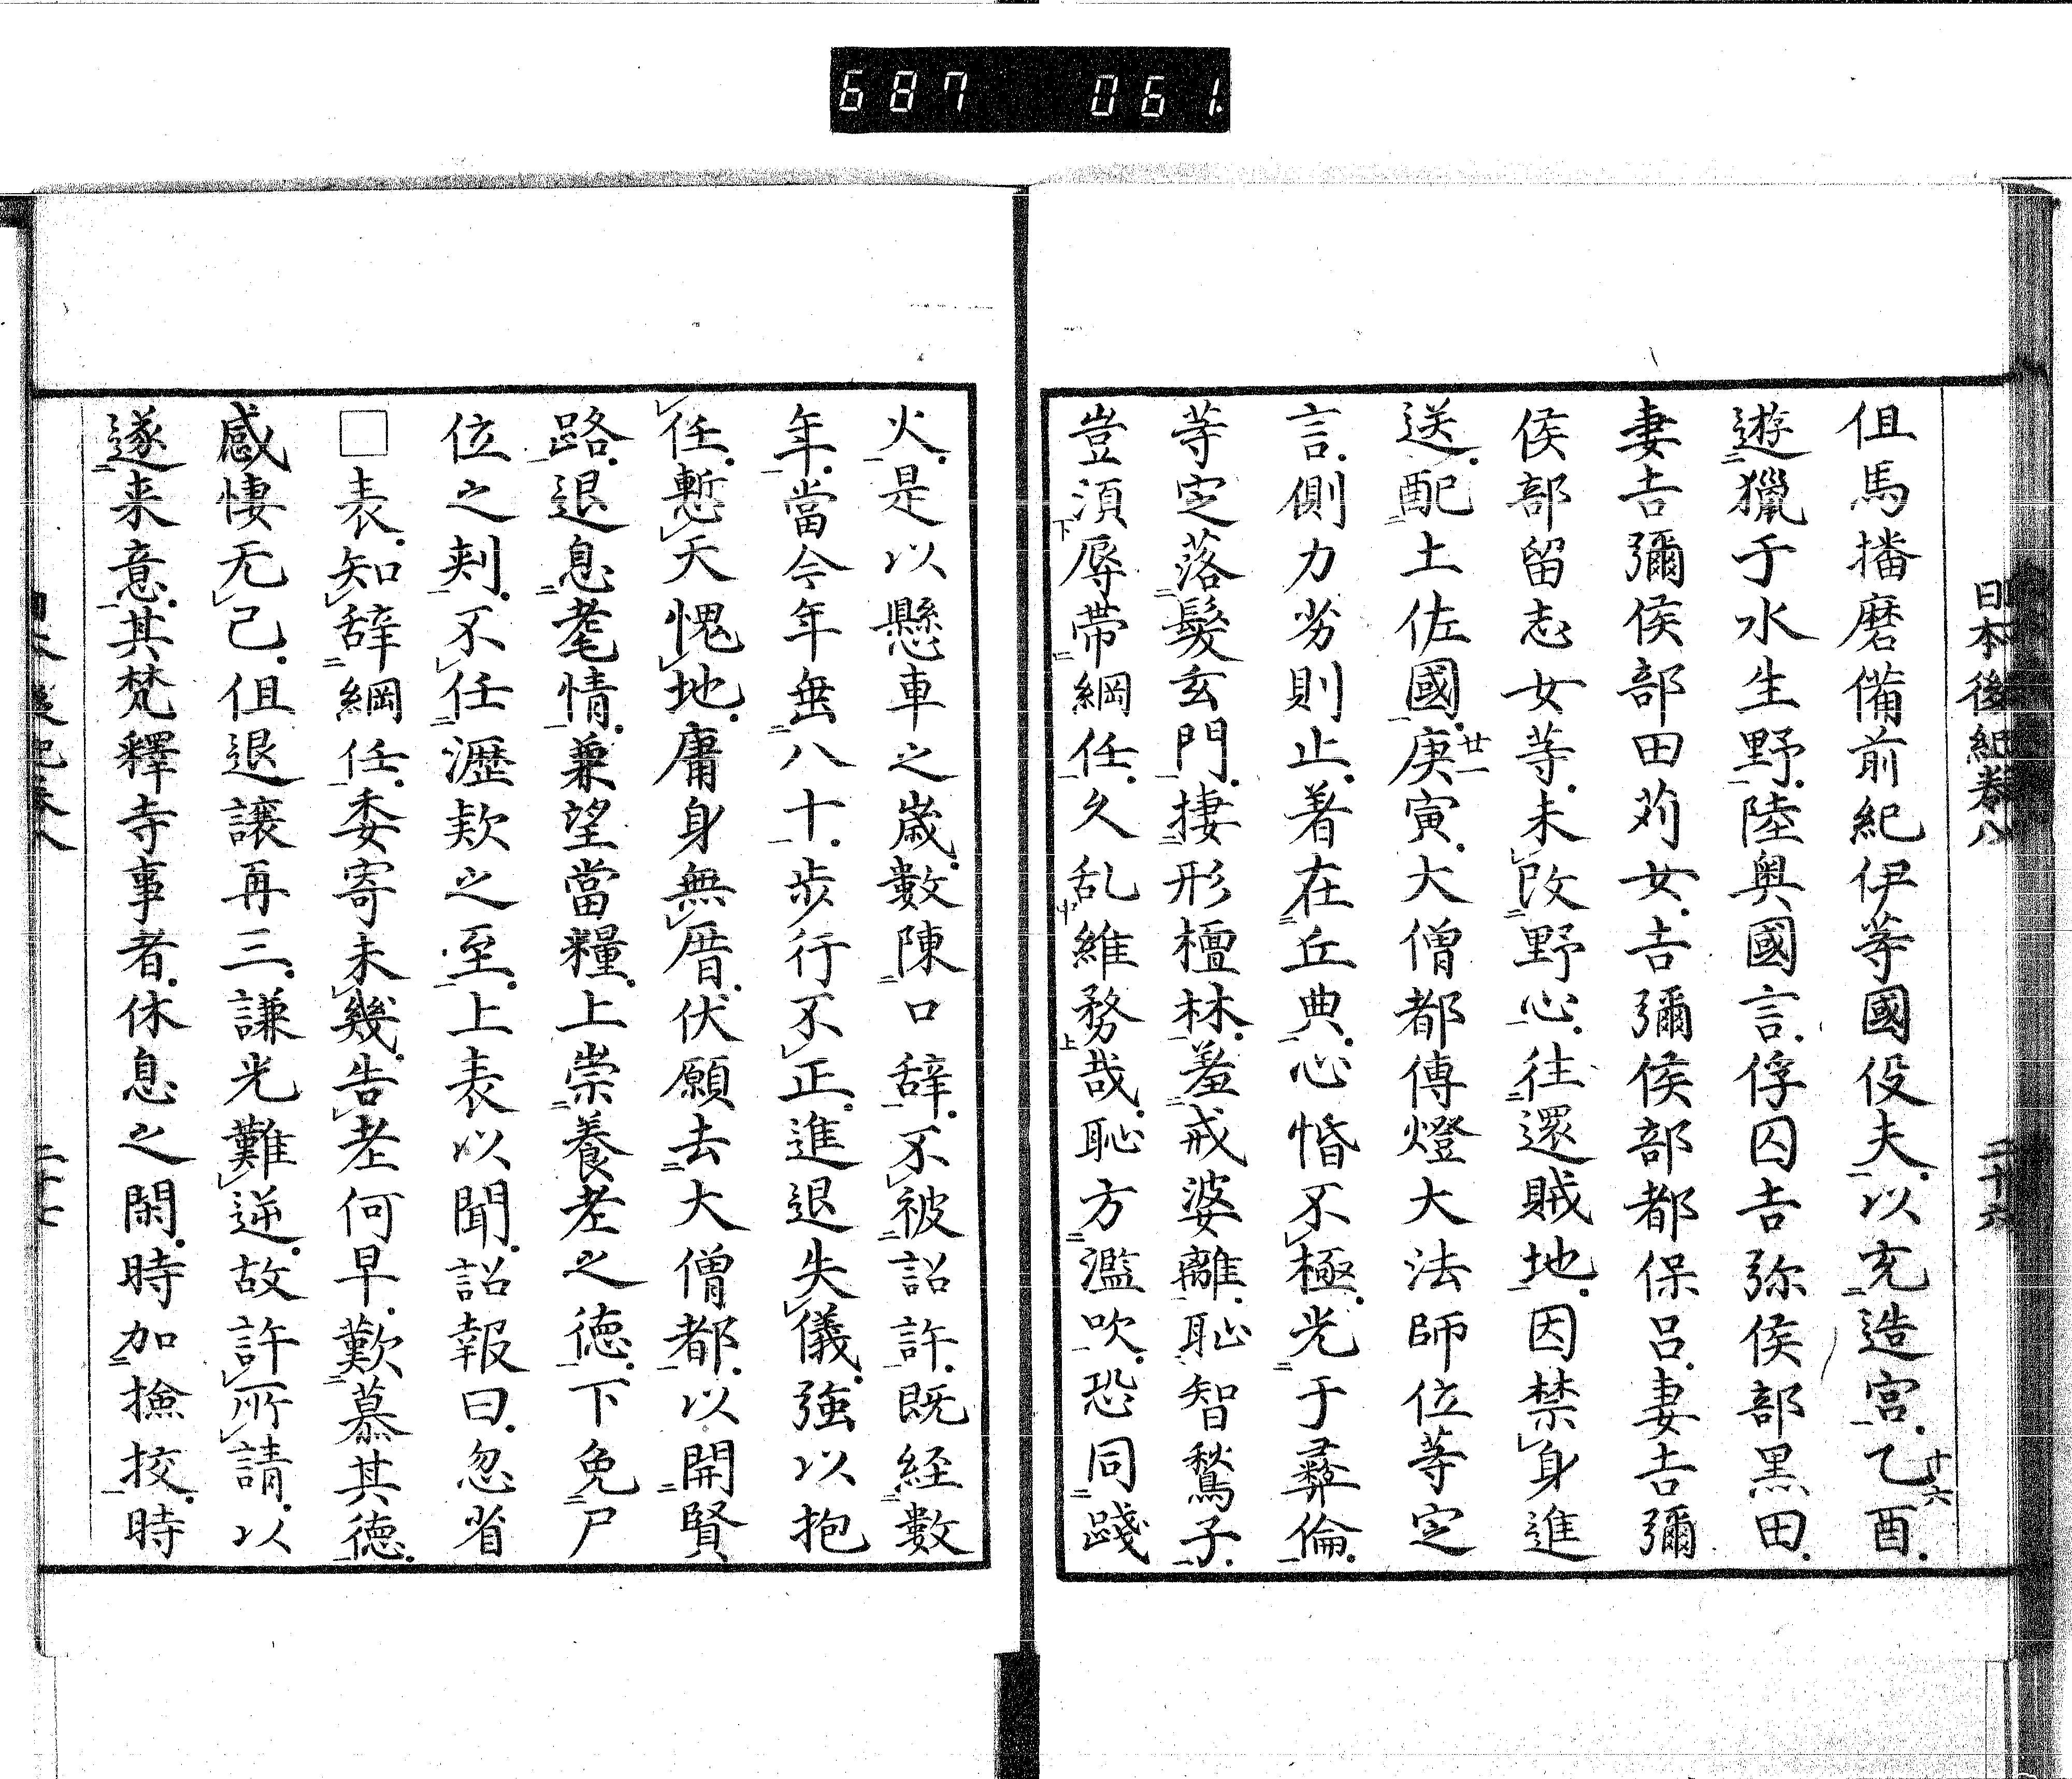 687 061
日本後紀卷八 二十六
但馬播磨備前紀伊等國役夫以充造宮乙酉十六
遊獵于水生野陸奥國言俘囚吉弥侯部黒田
妻吉彌侯部田苅女吉彌侯部都保呂妻吉彌
侯部留志女等未改野心往還賊地因禁身進
送配土佐國庚寅廿一大僧都傳燈大法師位等定
言側力劣則止著在丘典心惛不極光于彛倫
等定落髮玄門捿形檀林羞戒婆離恥智鶖子
豈湏辱帶綱任久乱維務哉恥方濫吹恐同踐
火是以懸車之歳數陳口辞不被詔許既経數
年當今年無八十歩行不正進退失儀強以抱
任慙天愧地庸身無厝伏願去大僧都以開賢
路退息耄情兼望當糧上崇養老之徳下免尸
位之刾不任瀝欵之至上表以聞詔報曰忽省
□表知辞綱任委寄未幾告老何早歎慕其徳
感悽无已但退譲再三謙光難逆故許所請以
遂来意其梵釋寺事者休息之閑時加撿挍時
日本後紀卷八 二十七